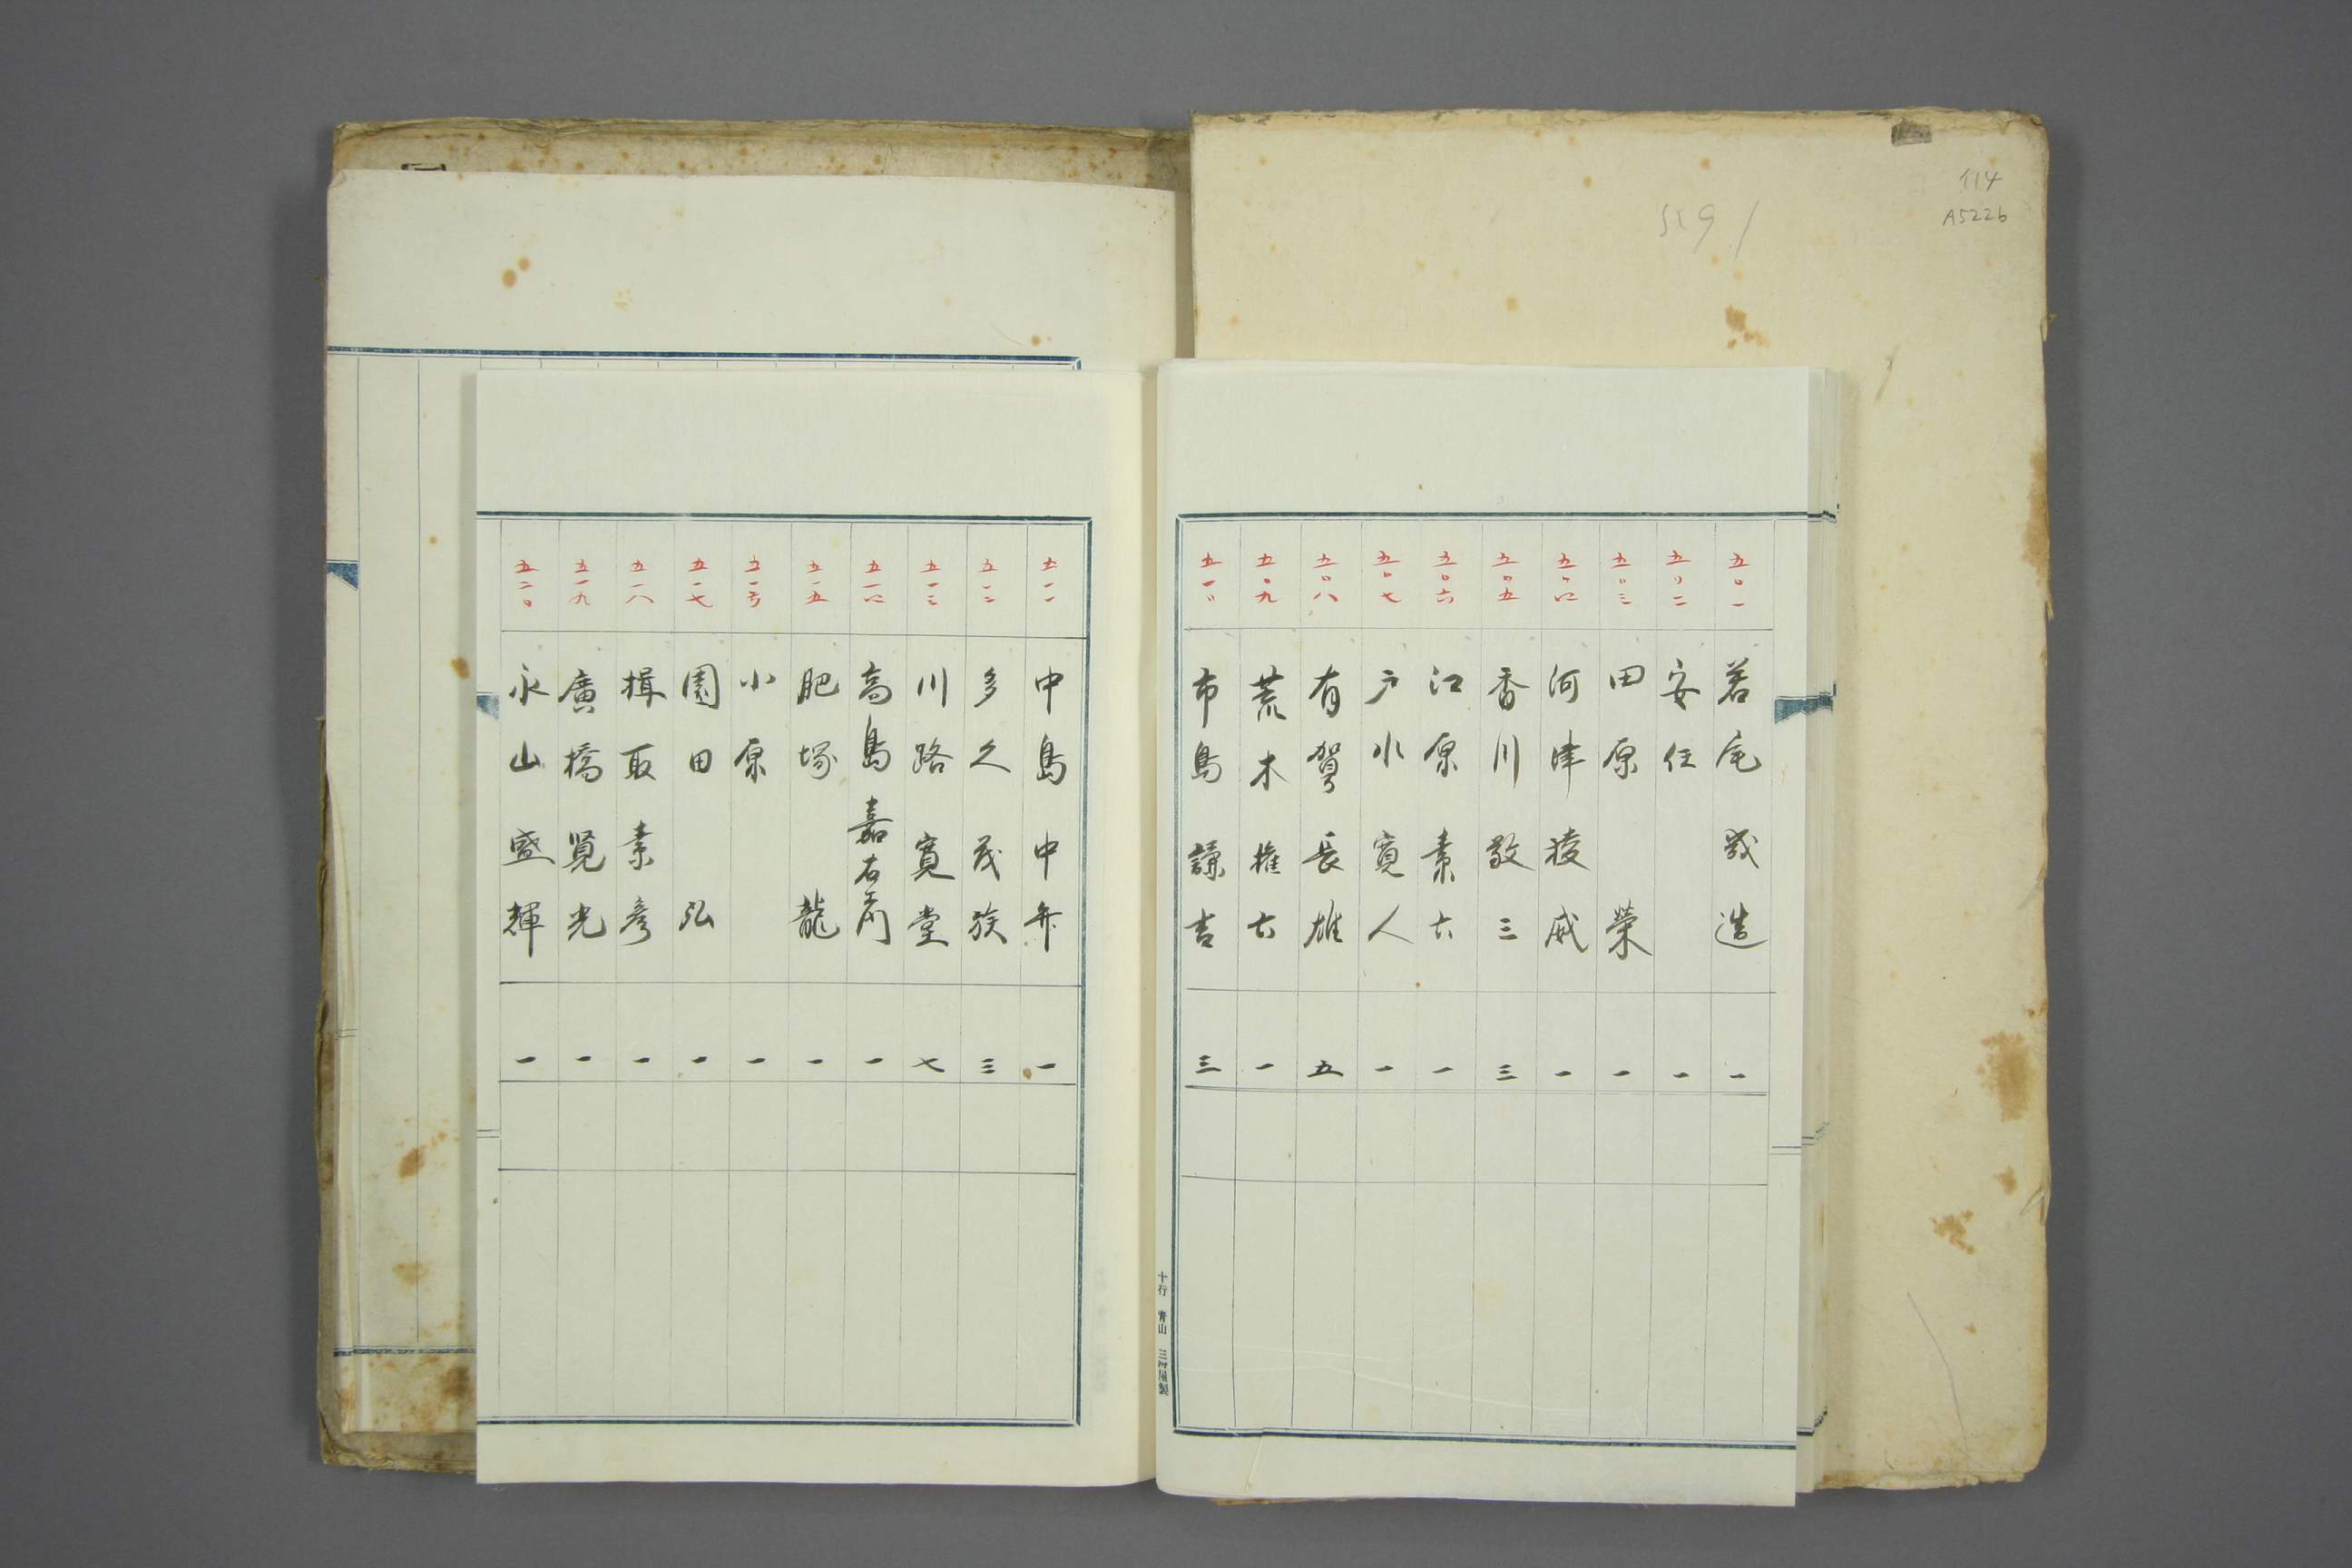 114
A5226
五〇一 若尾幾造 一
五〇二 安任 一
五〇三 田原榮 一
五〇四 河津祐威 一
五〇五 香川敬三 三
五〇六 江原素六 一
五〇七 戸水寛人 一
五〇八 有賀長雄 五
五〇九 荒木権六 一
五一〇 市島謙吉 三
十行 青山 三河屋製
五一一 中島中弁 一
五一二 多久茂族 三
五一三 川路寛堂 七
五一四 高島嘉右衛門 一
五一五 肥塚龍 一
五一六 小原 一
五一七 園田弘 一
五一八 揖取素彦 一
五一九 廣橋賢光 一
五二〇 永山盛輝 一